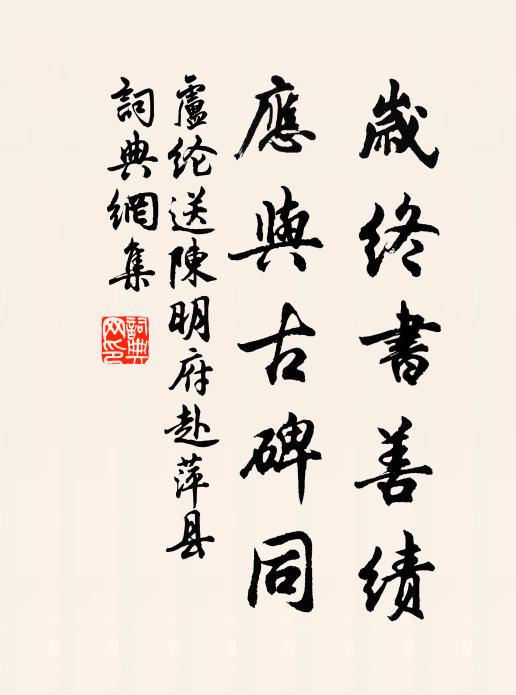 歲終書善績
應與古碑同
盧纶送陳明府赴萍县
詞典網集
詞典
网印